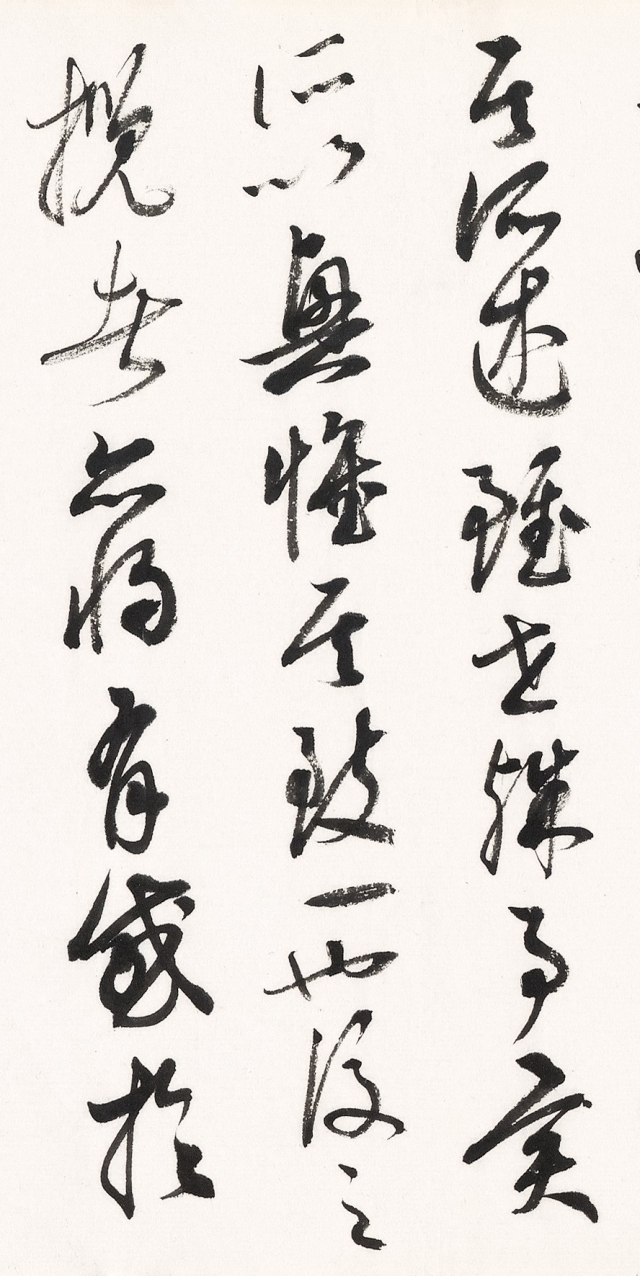 其所述雖世殊事異
所以興懷其致一也後之
攬者亦將有感於